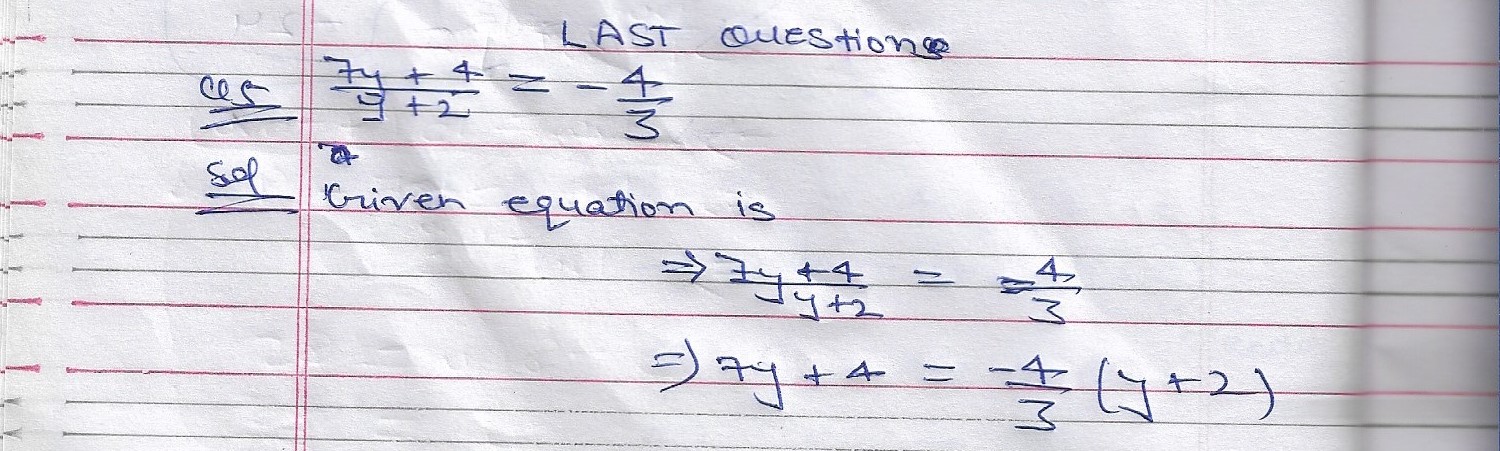 LAST QUESTIONS
Q5 (7y + 4)/(y + 2) = - 4/3
Sol Given equation is
⇒ (7y + 4)/(y + 2) = - 4/3
⇒ 7y + 4 = - 4/3 (y + 2)